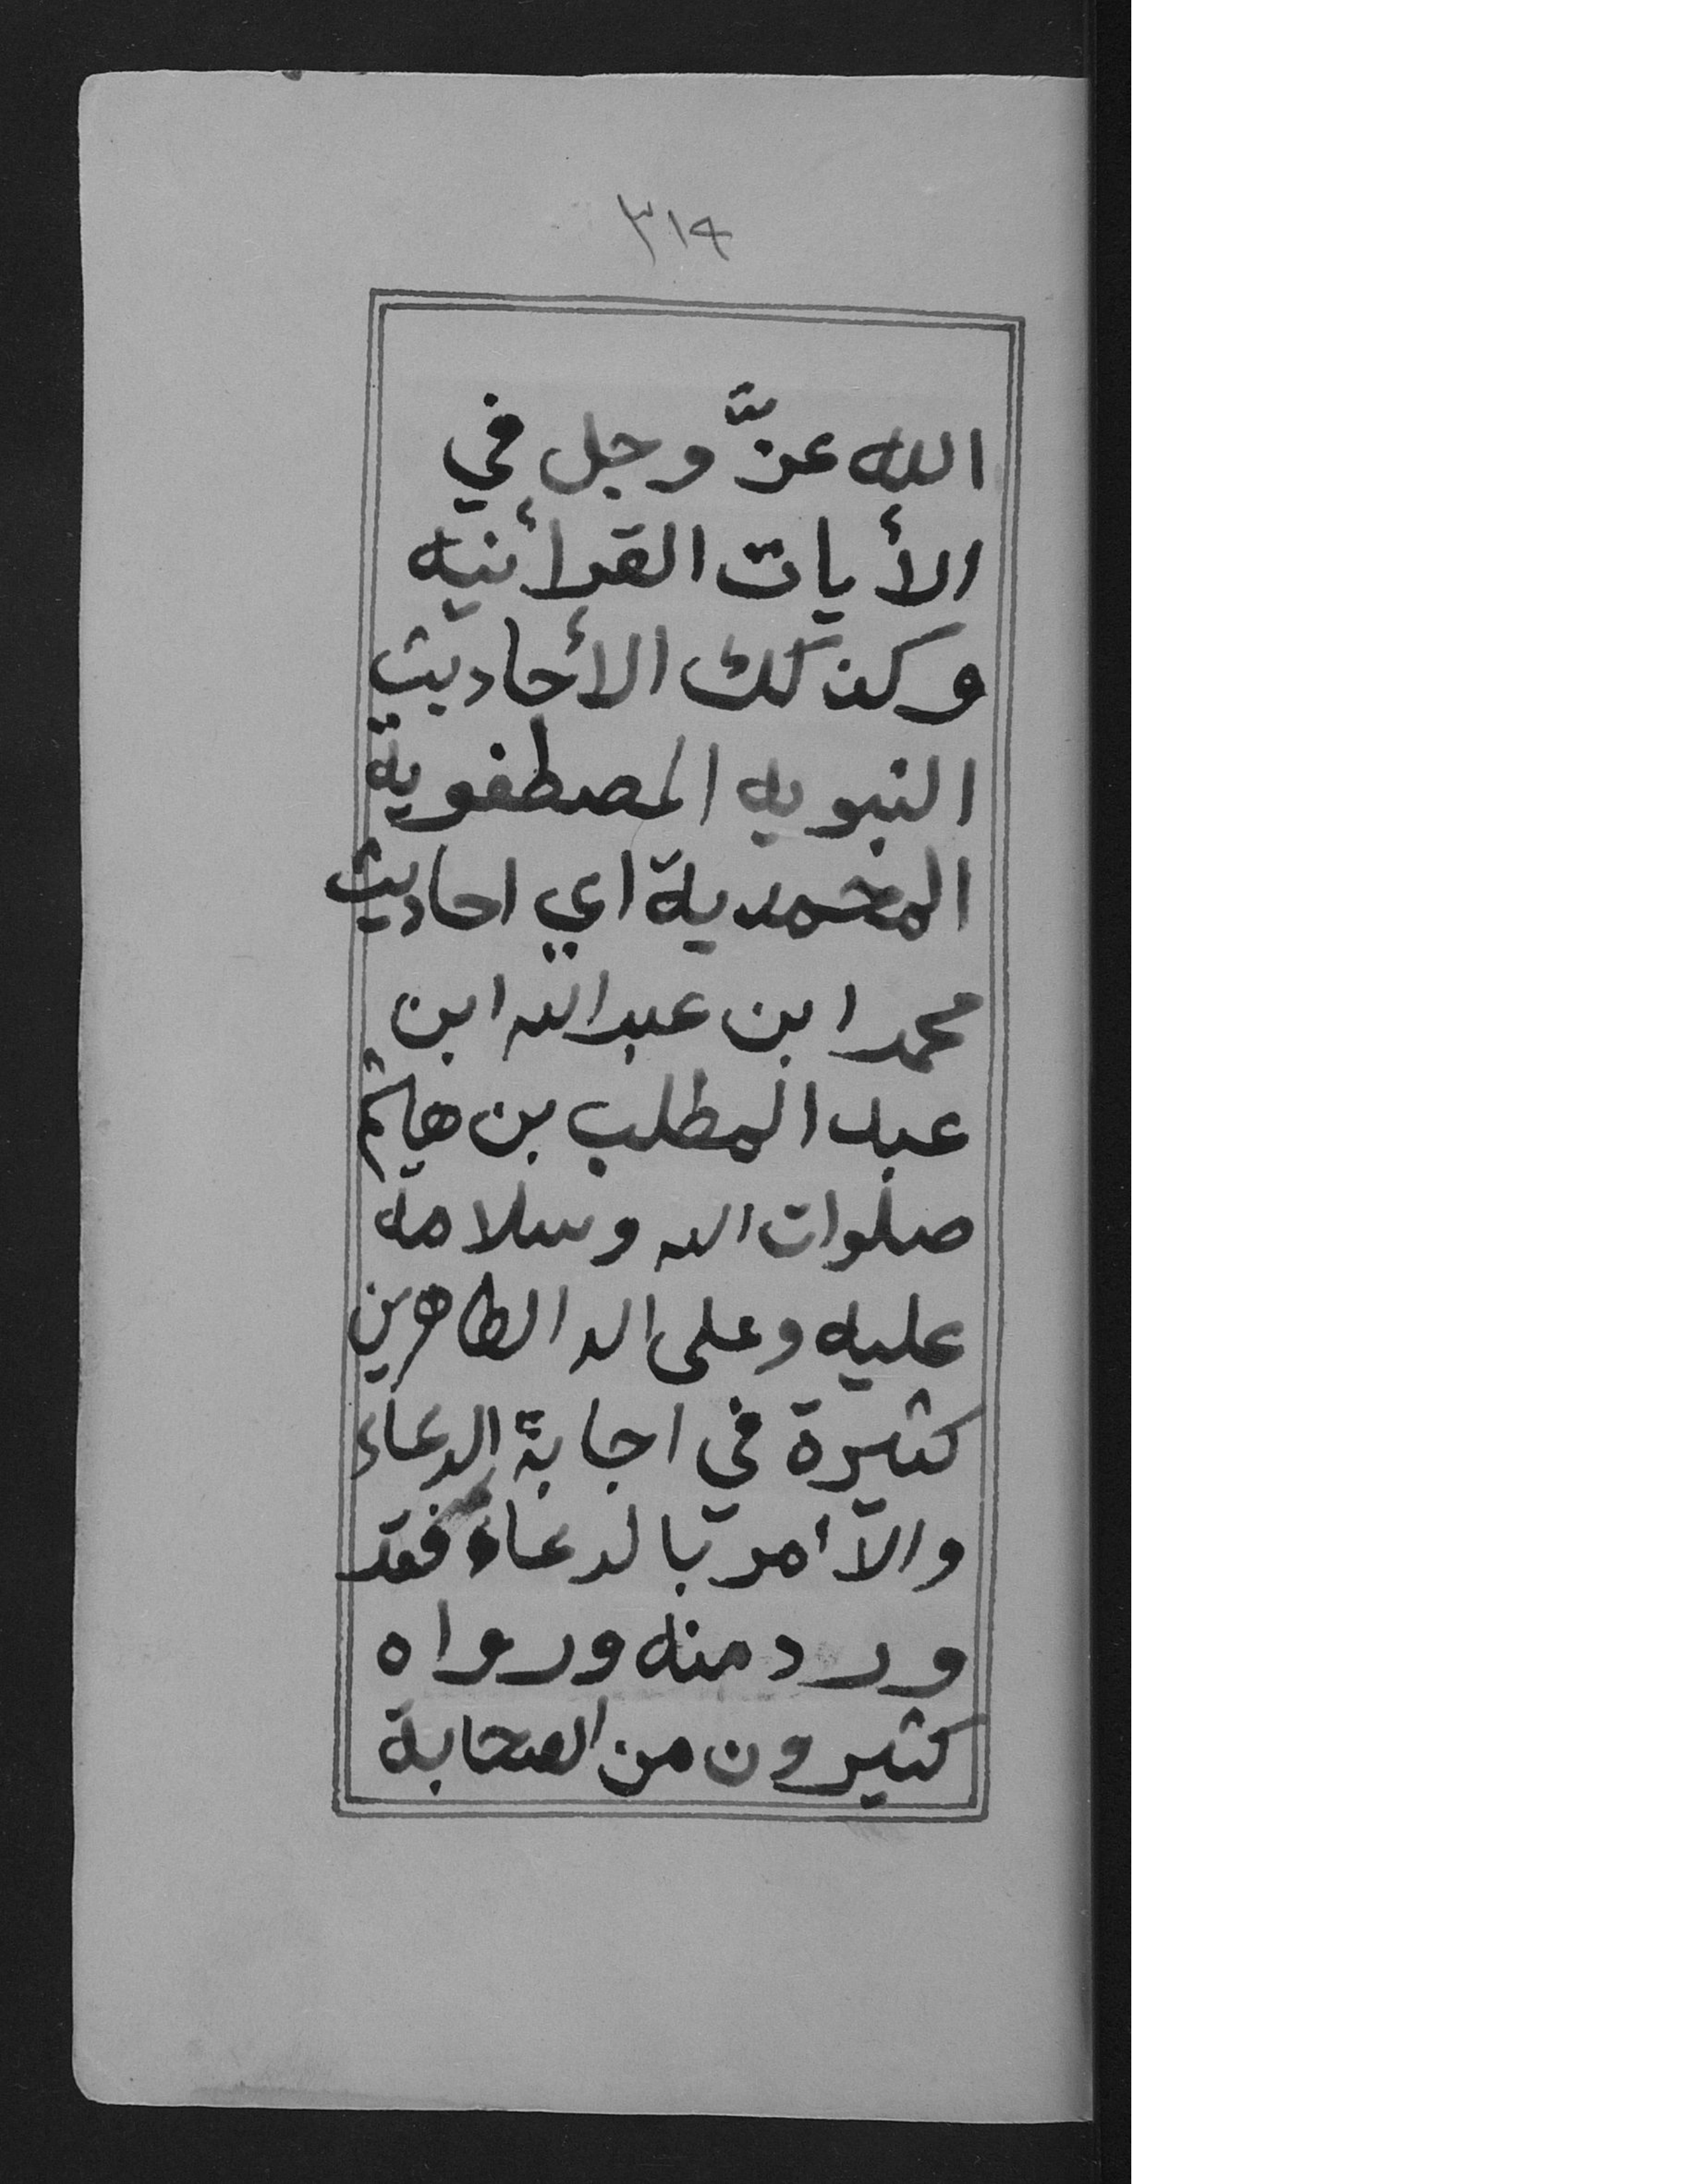 ٣١٤
الله عزَّ وجل في
الأيات القرأنيه
وكذلك الأحاديث
النبويه المصطفوية
المحمدية اي احاديث
محمد ابن عبدالله ابن
عبد المطلب بن هاشم
صلوات الله وسلامه
عليه وعلى اله الطاهرين
كثيرة في اجابة الدعاء
والأمر بالدعاء فقد
ورد منه ورواه
كثيرون من الصحابة